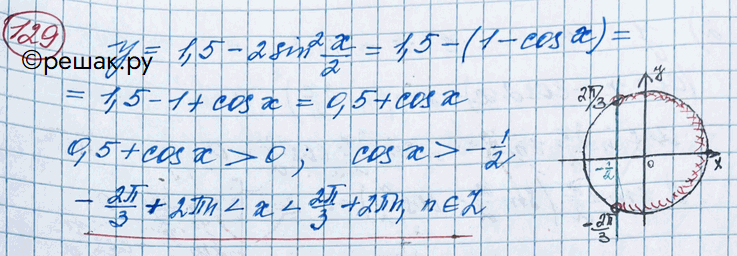 129
y = 1,5 - 2sin² x/2 = 1,5 - (1 - cos x) =
©решак.ру
= 1,5 - 1 + cos x = 0,5 + cos x
0,5 + cos x > 0 ; cos x > - 1/2
- 2π/3 + 2πn < x < 2π/3 + 2πn, n ∈ Z
y
2π/3
- 1/2 0 x
- 2π/3